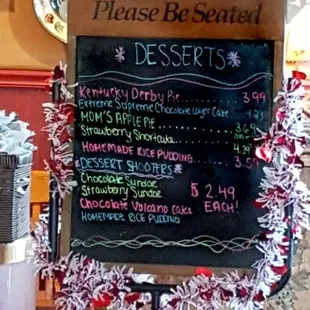 Please Be Seated
DESSERTS
Kentucky Derby Pie 3.99
Extreme Supreme Chocolate Layer Cake
MOM'S APPLE PIE 3.69
Strawberry Shortcake
HOMEMADE RICE PUDDING
DESSERT SHOOTERS
Chocolate Sundae
Strawberry Sundae $2.49
Chocolate Volcano Cake EACH!
HOMEMADE RICE PUDDING